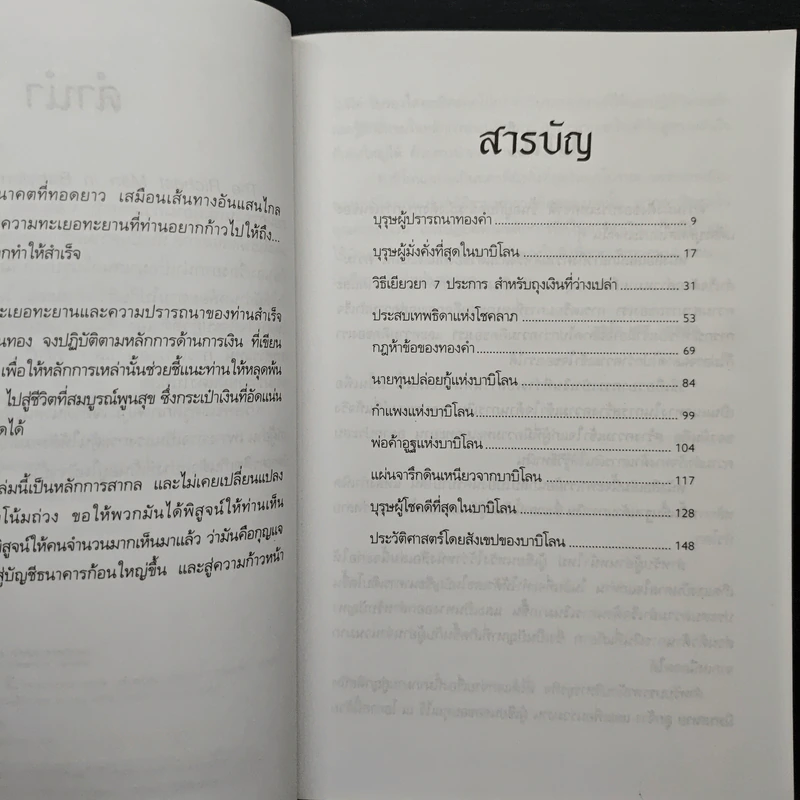 นาคตที่ทอดยาว เสมือนเส้นทางอันแสนไกล
ความทะเยอทะยานที่ท่านอยากก้าวไปให้ถึง...
กทำให้สำเร็จ
ะเยอทะยานและความปรารถนาของท่านสำเร็จ
นทอง จงปฏิบัติตามหลักการด้านการเงิน ที่เขียน
เพื่อให้หลักการเหล่านั้นช่วยชี้แนะท่านให้หลุดพ้น
ไปสู่ชีวิตที่สมบูรณ์พูนสุข ซึ่งกระเป๋าเงินที่อัดแน่น
ดได้
ล่มนี้เป็นหลักการสากล และไม่เคยเปลี่ยนแปลง
โน้มถ่วง ขอให้พวกมันได้พิสูจน์ให้ท่านเห็น
พิสูจน์ให้คนจำนวนมากเห็นมาแล้ว ว่ามันคือกุญแจ
สู่บัญชีธนาคารก้อนใหญ่ขึ้น และสู่ความก้าวหน้า
สารบัญ
บุรุษผู้ปรารถนาทองคำ 9
บุรุษผู้มั่งคั่งที่สุดในบาบิโลน 17
วิธีเยียวยา 7 ประการ สำหรับถุงเงินที่ว่างเปล่า 31
ประสบเทพธิดาแห่งโชคลาภ 53
กฎห้าข้อของทองคำ 69
นายทุนปล่อยกู้แห่งบาบิโลน 84
กำแพงแห่งบาบิโลน 99
พ่อค้าอูฐแห่งบาบิโลน 104
แผ่นจารึกดินเหนียวจากบาบิโลน 117
บุรุษผู้โชคดีที่สุดในบาบิโลน 128
ประวัติศาสตร์โดยสังเขปของบาบิโลน 148